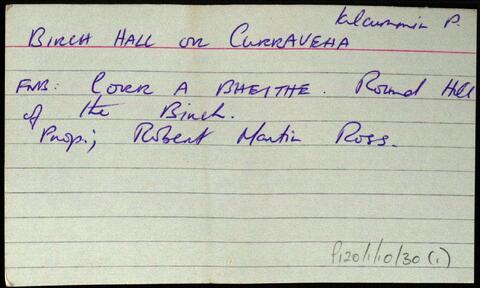 Kilcummin P.
BIRCH HALL OR CURRAVEHA
FNB: CORR A BHEITHE. Round Hill
of the Birch.
Prop.; Robert Martin Ross.
P120/1/10/30 (i)